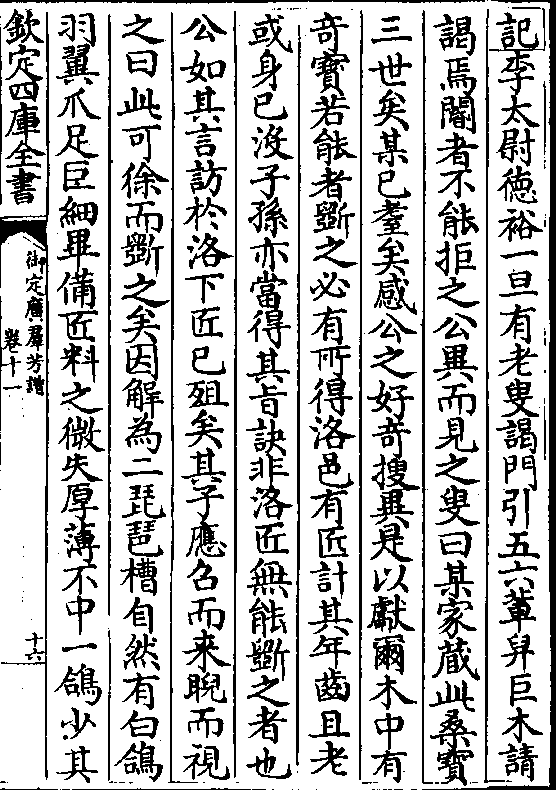 記李太尉徳裕一旦有老叟謁門引五六輩舁巨木請
謁焉閽者不能拒之公異而見之叟曰某家蔵此桑寶
三世矣某已耄矣感公之好奇搜異是以獻爾木中有
奇寶若能者斲之必有所得洛邑有匠計其年齒且老
或身已沒子孫亦當得其旨訣非洛匠無能斲之者也
公如其言訪於洛下匠已殂矣其子應召而来睨而視
之曰此可徐而斲之矣因解為二琵琶槽自然有白鴿
羽翼爪足巨細畢備匠料之微失厚薄不中一鴿少其
欽定四庫全書
御定廣羣芳譜
卷十一
十六